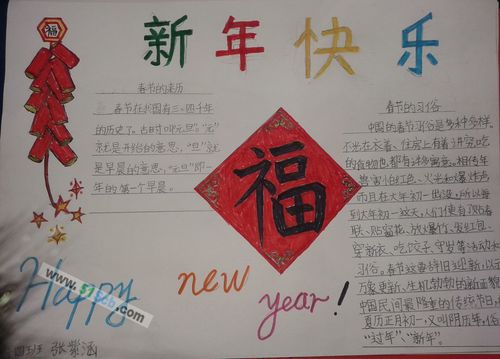 新年快乐
福
春节的来历
春节在我国有三、四千年
的历史了。古时叫"元旦"。"元"
就是开始的意思,"旦"就
是早晨的意思,"元旦"即一
年的第一个早晨。
福
春节的习俗
中国的春节习俗是多种多样,
不论在衣着、住房上有着讲究,吃
的食物也都有许多寓意。相传年
兽害怕红色、火光和爆炸声
而且在大年初一出没,所以每
到大年初一这天,人们便有了贴春
联、贴窗花、放爆竹、发红包、
穿新衣、吃饺子、守岁等活动和
习俗。春节这意辞旧迎新,以示
万象更新、生机勃勃的新面貌
中国民间最隆重的传统节日,
夏历正月初一,又叫阴历年,俗
"过年"、"新年"。
Happy new year!
www.573cb.com
四五班 张 涵